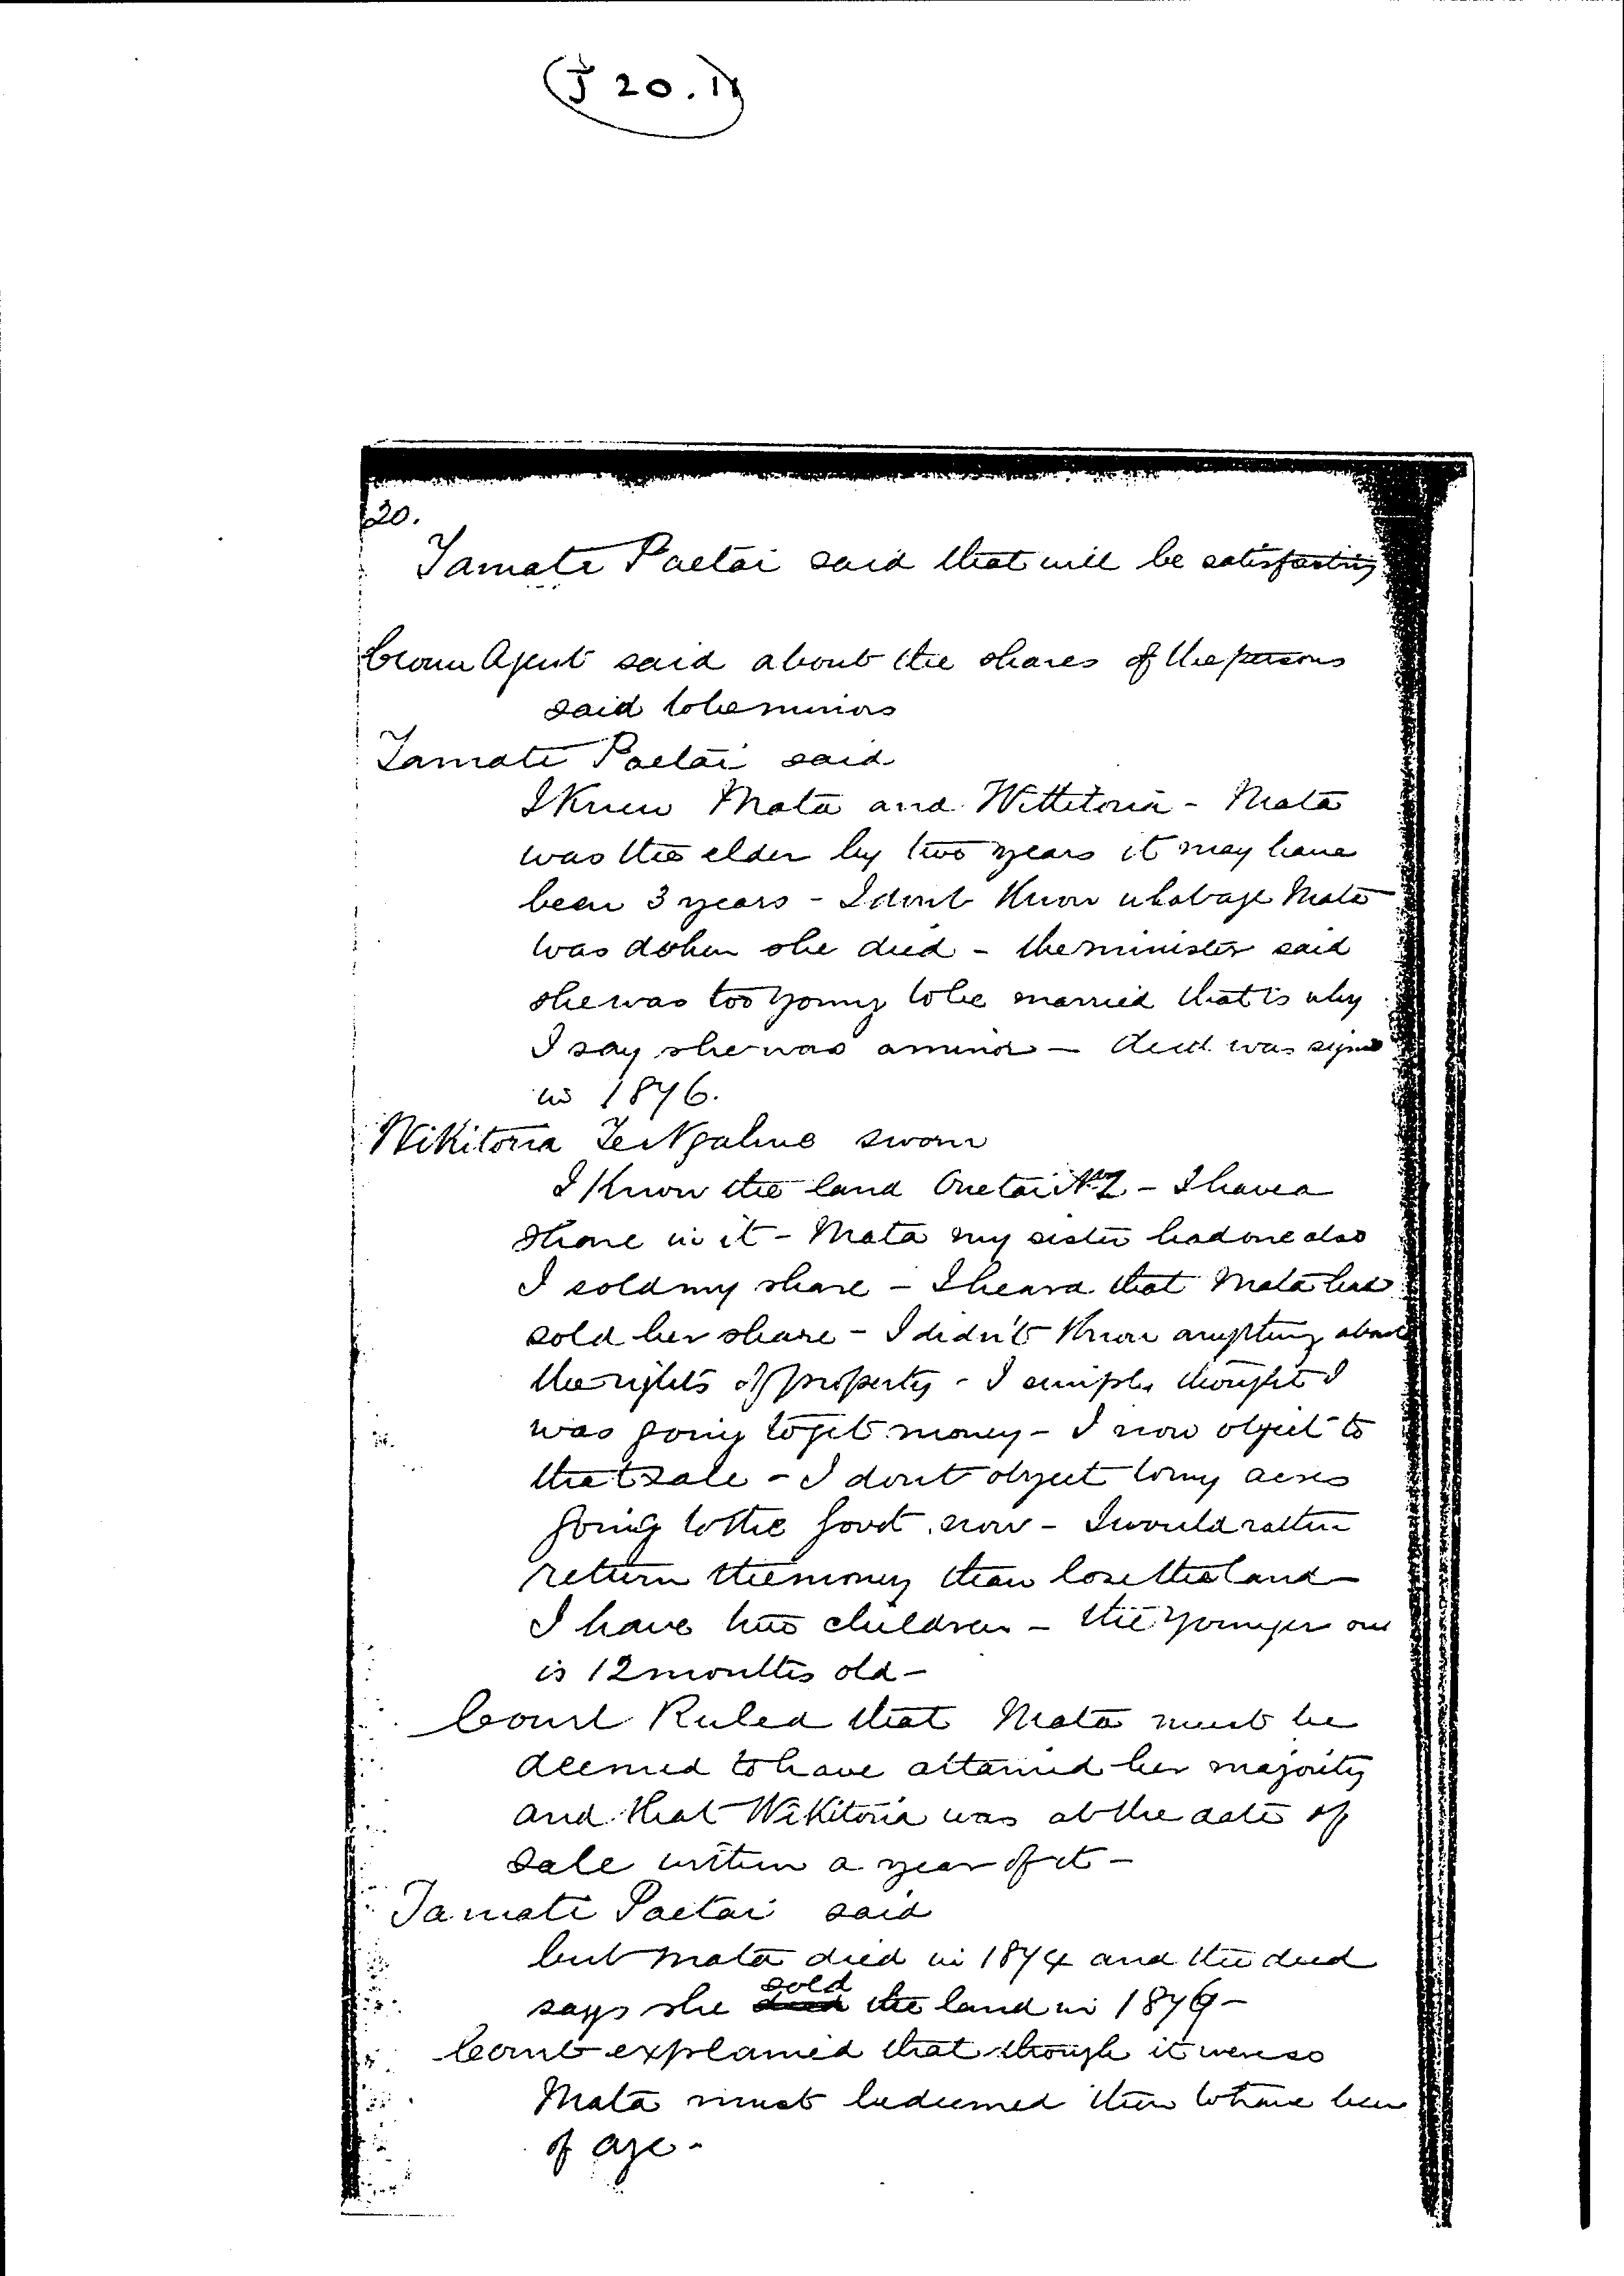 (J 20.11)
120.
Tamati Paetai said that will be satisfactory
Crown Agent said about the shares of the persons
said to be minors
Tamati Paetai said
I knew Mata and Wikitoria - Mata
was the elder by two years it may have
been 3 years - I dont know what age Mata
was when she died - the minister said
she was too young to be married that is why
I say she was a minor - deed was signed
in 1876.
Wikitoria Te Ngahue sworn
I know the land Onetai No 2 - I have a
share in it - Mata my sister had one also
I sold my share - I heard that Mata had
sold her share - I didn't know anything about
the rights of property - I simply thought I
was going to get money - I now object to
that sale - I dont object to my acres
going to the Govt now - I would rather
return the money than lose the land
I have two children - the younger one
is 12 months old -
Court Ruled that Mata must be
deemed to have attained her majority
and that Wikitoria was at the date of
sale within a year of it -
Tamati Paetai said
but Mata died in 1874 and the deed
says she sold the land in 1876 -
Court explained that though it were so
Mata must be deemed then to have been
of age -